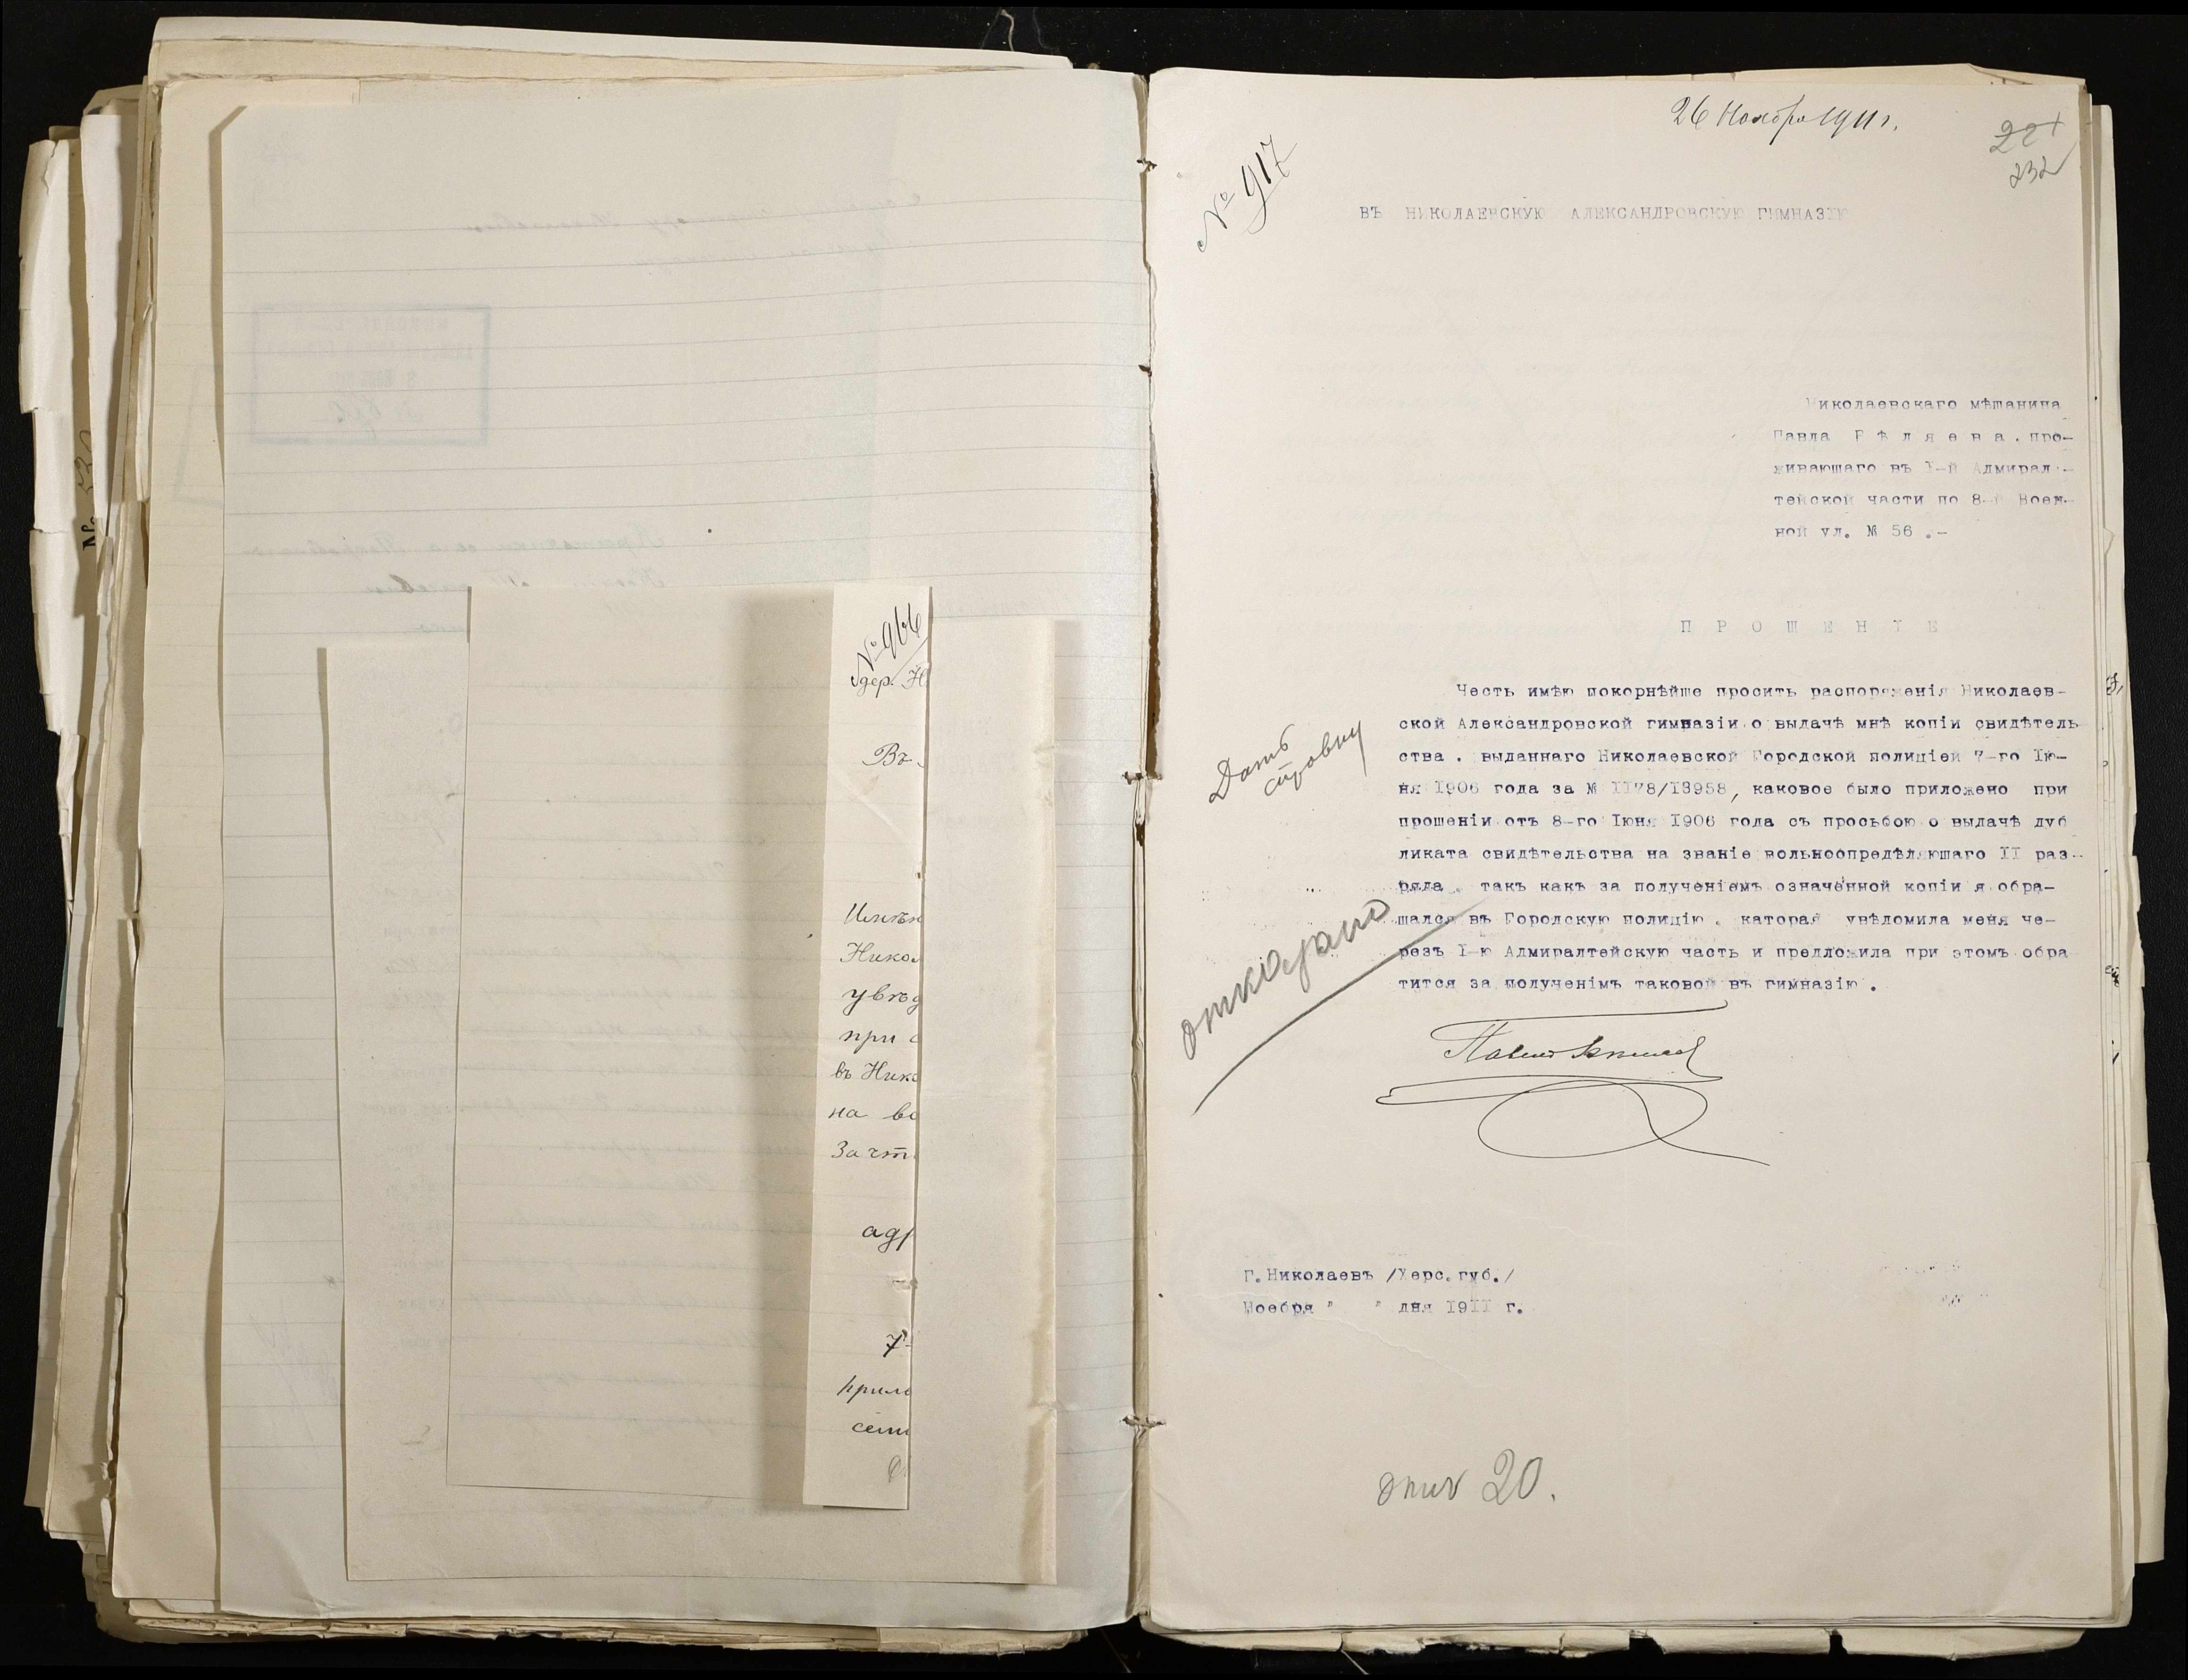 № 966
дер. Н
Въ
Имѣю
Никол
увѣд
при с
въ Нико
на во
За что
адр
7
прило
семи
26 Ноября 1911 г.
221
232
№ 917
ВЪ НИКОЛАЕВСКУЮ АЛЕКСАНДРОВСКУЮ ГИМНАЗІЮ
Николаевскаго мѣщанина
Павла Б ѣ л я е в а , про-
живающаго въ I-й Адмирал-
тейской части по 8-й Воен-
ной ул. № 56 .-
П Р О Ш Е Н І Е
Честь имѣю покорнѣйше просить распоряженія Николаев-
ской Александровской гимназіи о выдачѣ мнѣ копіи свидѣтель
ства , выданнаго Николаевской Городской полиціей 7-го Iю-
ня I906 года за № II78/I3958, каковое было приложено при
прошеніи отъ 8-го Iюня I906 года съ просьбою о выдачѣ дуб
ликата свидѣтельства на званіе вольноопредѣляющаго II раз-
ряда , такъ какъ за полученіемъ означенной копіи я обра-
щался въ Городскую полицію , каторая увѣдомила меня че-
резъ I-ю Адмиралтейскую часть и предложила при этомъ обра
тится за полученімъ таковой въ гимназію .
Дать
справку
отказано
Павелъ Бѣляев
Г. Николаевъ /Херс. губ./
Ноебря " " дня I9II г.
отв 20.